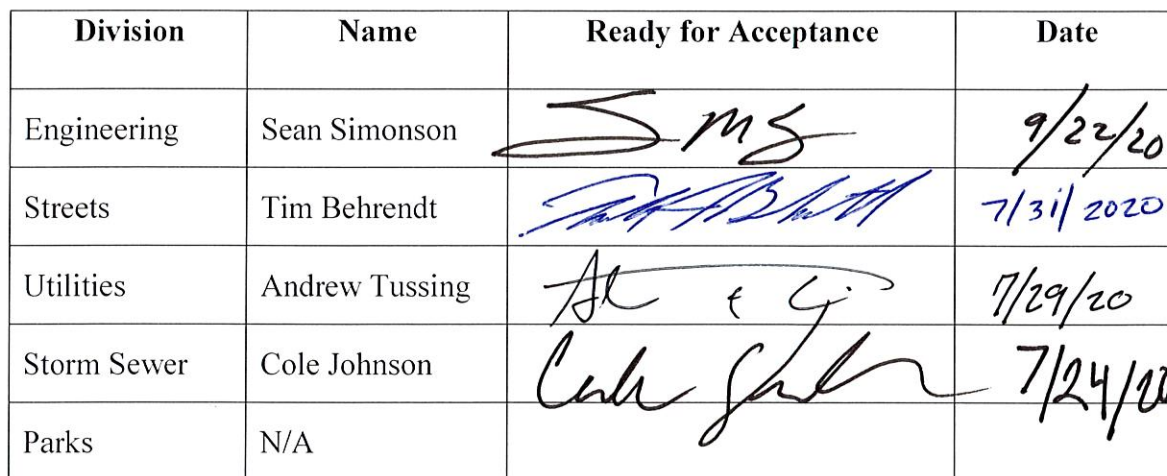 Division Name Ready for Acceptance Date
Engineering Sean Simonson 9/22/20
Streets Tim Behrendt 7/31/2020
Utilities Andrew Tussing 7/29/20
Storm Sewer Cole Johnson 7/24/20
Parks N/A